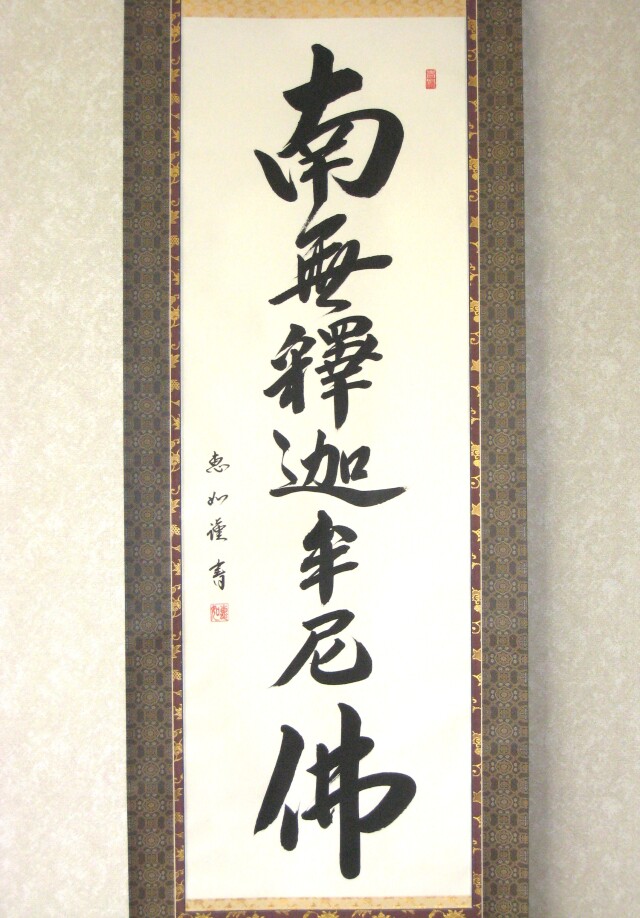 南無釋迦牟尼佛
恵如謹書